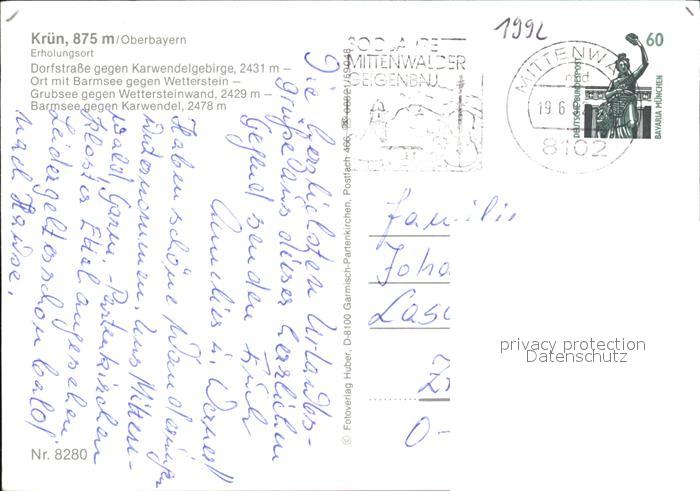 Krün, 875 m/Oberbayern
Erholungsort
Dorfstraße gegen Karwendelgebirge, 2431 m –
Ort mit Barmsee gegen Wetterstein –
Grubsee gegen Wettersteinwand, 2429 m –
Barmsee gegen Karwendel, 2478 m
Die herzlichsten Urlaubs-
grüße aus dieser herrlichen
Gegend senden Euch
Annelies u. Werner
Haben schöne Wanderungen
unternommen, uns Mitten-
wald, Garm.-Partenkirchen
Kloster Ettal angesehen.
Leider geht es schon bald
nach Hause.
Nr. 8280
© Fotoverlag Huber, D-8100 Garmisch-Partenkirchen, Postfach 466, ☎ 08821/
300 JAHRE
MITTENWALDER
GEIGENBAU
1992
MITTENWA
19.6
8102
60
DEUTSCHE BUNDESPOST
BAVARIA MÜNCHEN
Familie
Joha
O-
privacy protection
Datenschutz